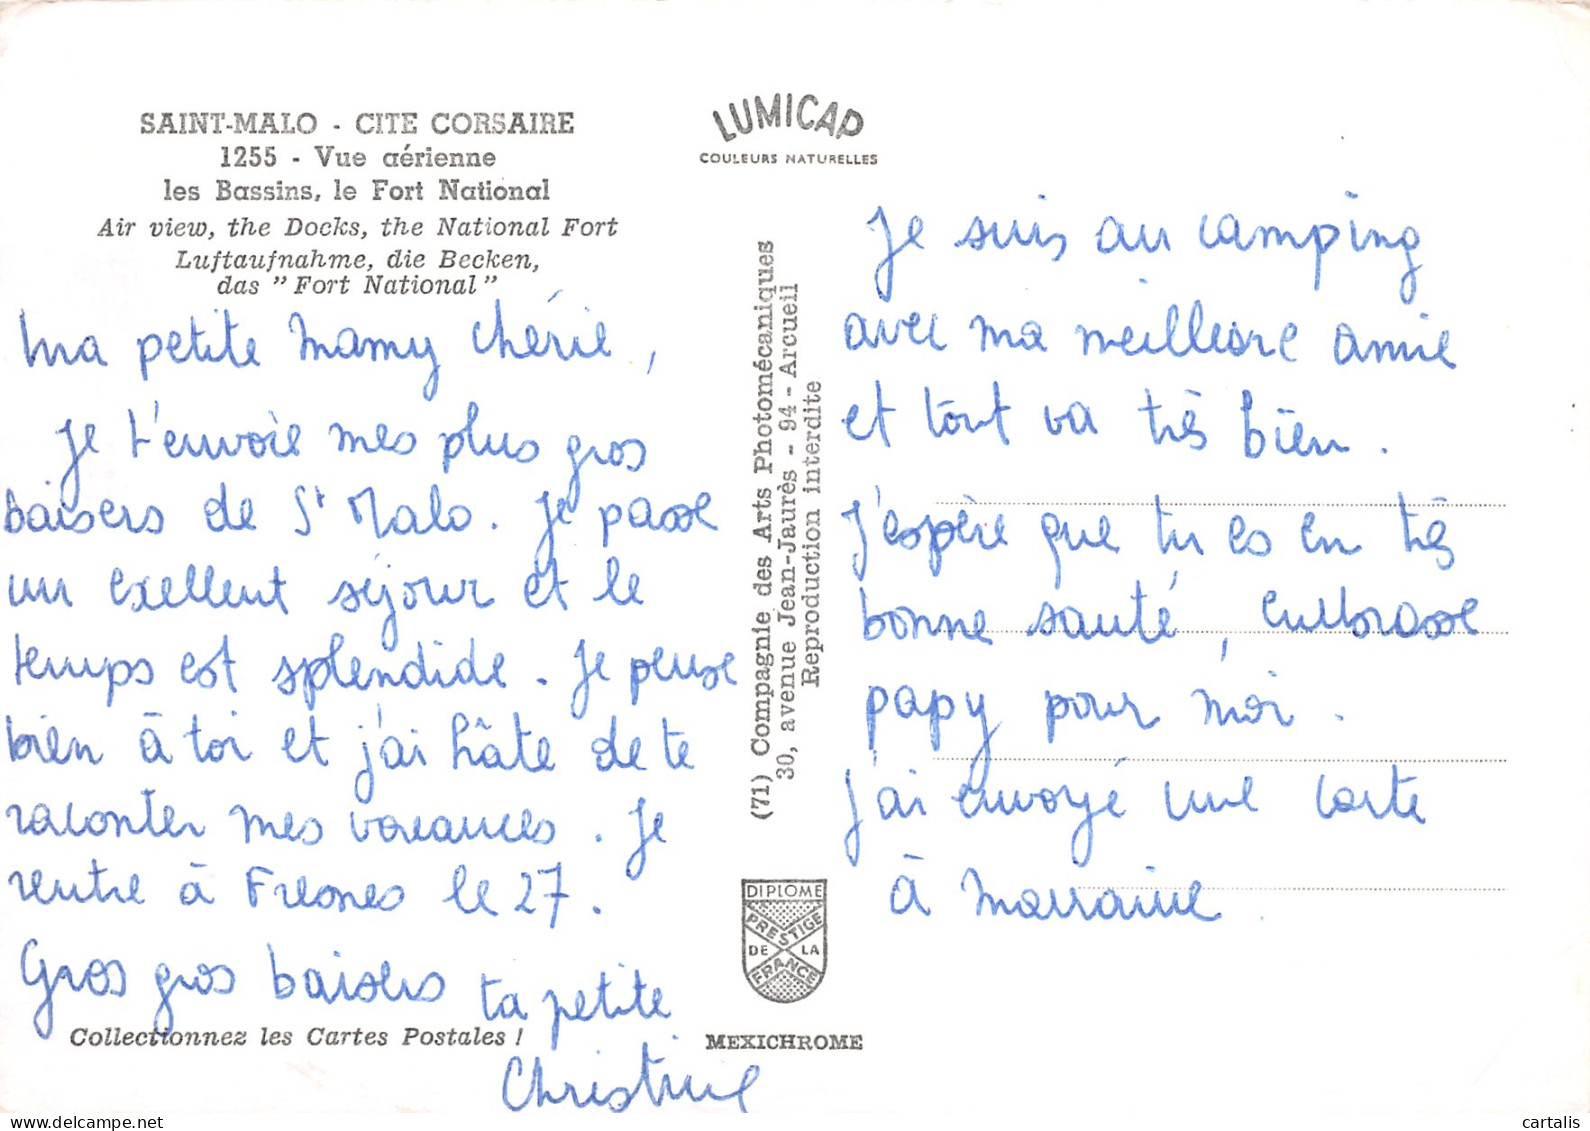 SAINT-MALO - CITE CORSAIRE
1255 - Vue aérienne
les Bassins, le Fort National
Air view, the Docks, the National Fort
Luftaufnahme, die Becken,
das "Fort National"
Ma petite Mamy Chérie,
Je t'envoie mes plus gros
baisers de St Malo. Je passe
un exellent séjour et le
temps est splendide. Je pense
bien à toi et j'ai hâte de te
raconter mes vacances. Je
rentre à Fresnes le 27.
Gros gros baisers ta petite
Christine
Collectionnez les Cartes Postales !
LUMICAP
COULEURS NATURELLES
(71) Compagnie des Arts Photomécaniques
30, avenue Jean-Jaurès - 94 - Arcueil
Reproduction interdite
DIPLOME
PRESTIGE
DE LA
FRANCE
MEXICHROME
Je suis au camping
avec ma meilleure amie
et tout va très bien.
J'espère que tu es en très
bonne santé, embrasse
papy pour moi.
J'ai envoyé une carte
à Marraine.
cartalis
www.delcampe.net